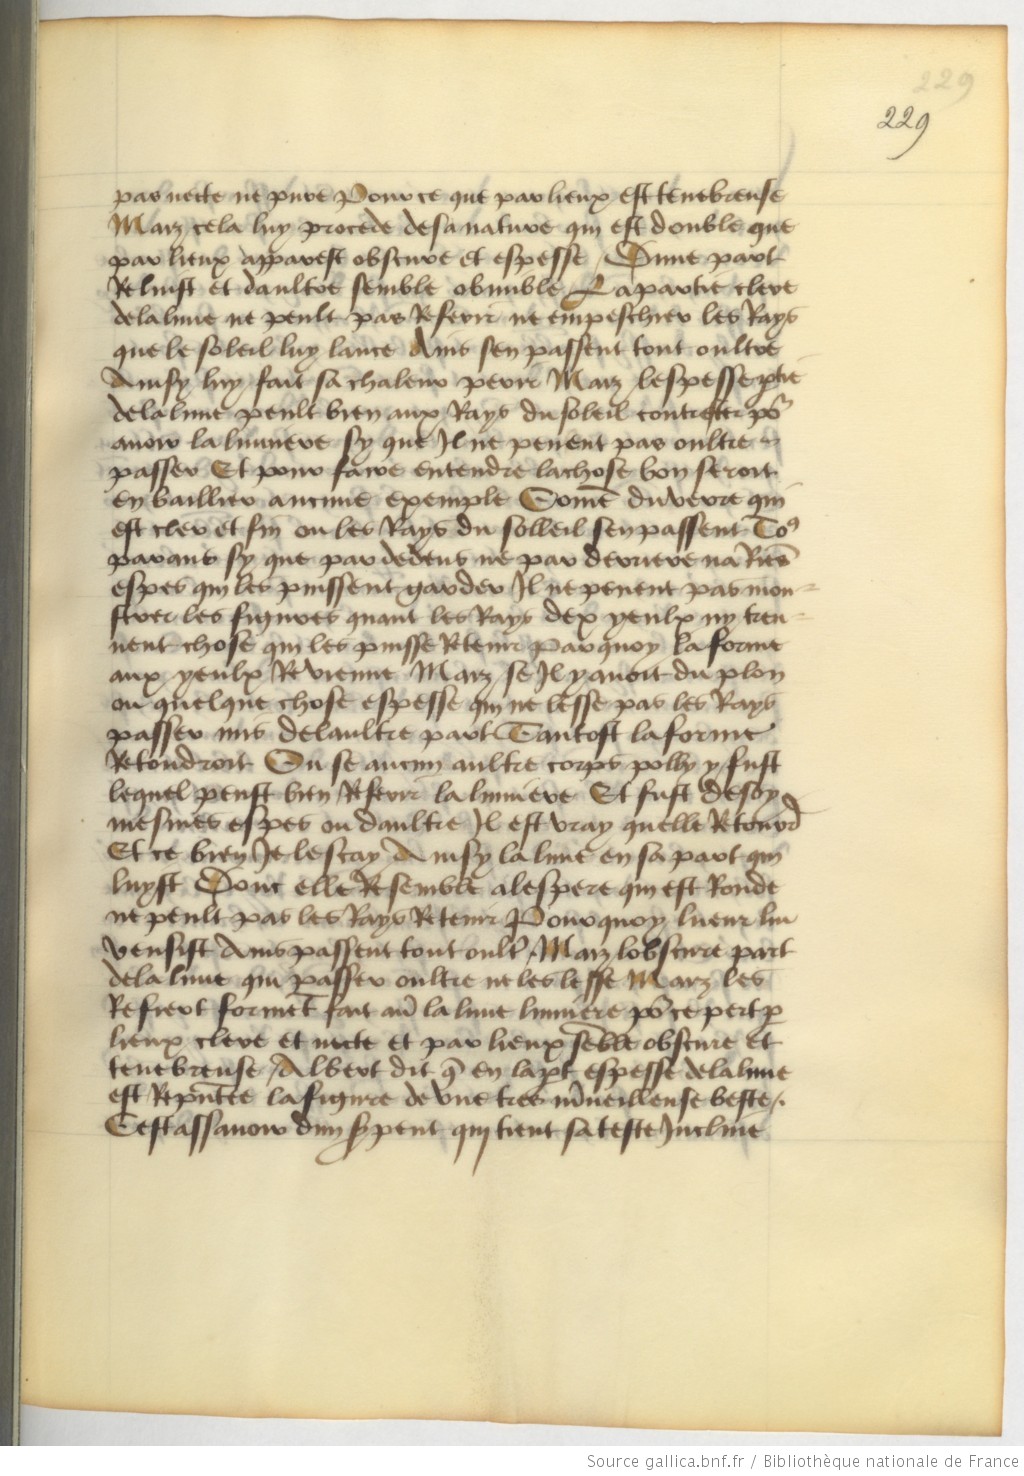 229
229
pas necte ne pure Pour ce que par lieux est tenebreuse
Maiz cela luy procede de sa nature qui est double que
par lieux apparest obscure et espesse / Dune part
Reluist et daultre semble obnuble La partie clere
de la lune ne peult pas Referir ne empeschier les Rays
que le soleil luy lance Ains sen passent tout oultre
Ainsy luy fait sa chaleur perir Maiz lespesse ptie
de la lune peult bien aux Rays du soleil contrester po^r
auoir la lumiere sy que Il ne peuent pas oultre
passer Et pour faire entendre la chose bon seroit
en baillier aucune exemple Comē du verre qui
est cler et fin ou les Rays du solleil sen passent To^9
parans sy que par dedens ne par derriere na Riēs
espes qui les puissent garder Il ne peuent pas mon-
strer les figures quant les Rays dex yeulx ny treu-
uent chose qui les puisse Retenir Par quoy la forme
aux yeulx Revienne Maiz se Il y auoit du plon
ou quelque chose espesse qui ne lesse pas les Rays
passer mis de laultre part Tantost la forme
Retondroit Ou se aucun aultre corps polly y fust
lequel peust bien Referir la lumiere Et fust de soy
mesmes espes ou daultre Il est vray quelle Retourd
Et ce bien Je le scay Ainsy la lune en sa part qui
luyst Donc elle Resemble a lespere qui est Ronde
ne peult pas les Rays Retenir Pour quoy lueur luy
vensist Ains passent tout oult^r Maiz lobscure part
de la lune qui passer oultre ne les lesse Maiz les
Refiert formēt fait au la lune lumiere po^r ce pert p
lieux clere et necte et par lieux sēble obscure et
tenebreuse / Albert dit q̄ en la pt espesse de la lune
est Repntee la figure de vne tres mueilleuse beste /.
Cest assauoir dun spent qui tient sa teste Incline
Source gallica.bnf.fr / Bibliothèque nationale de France